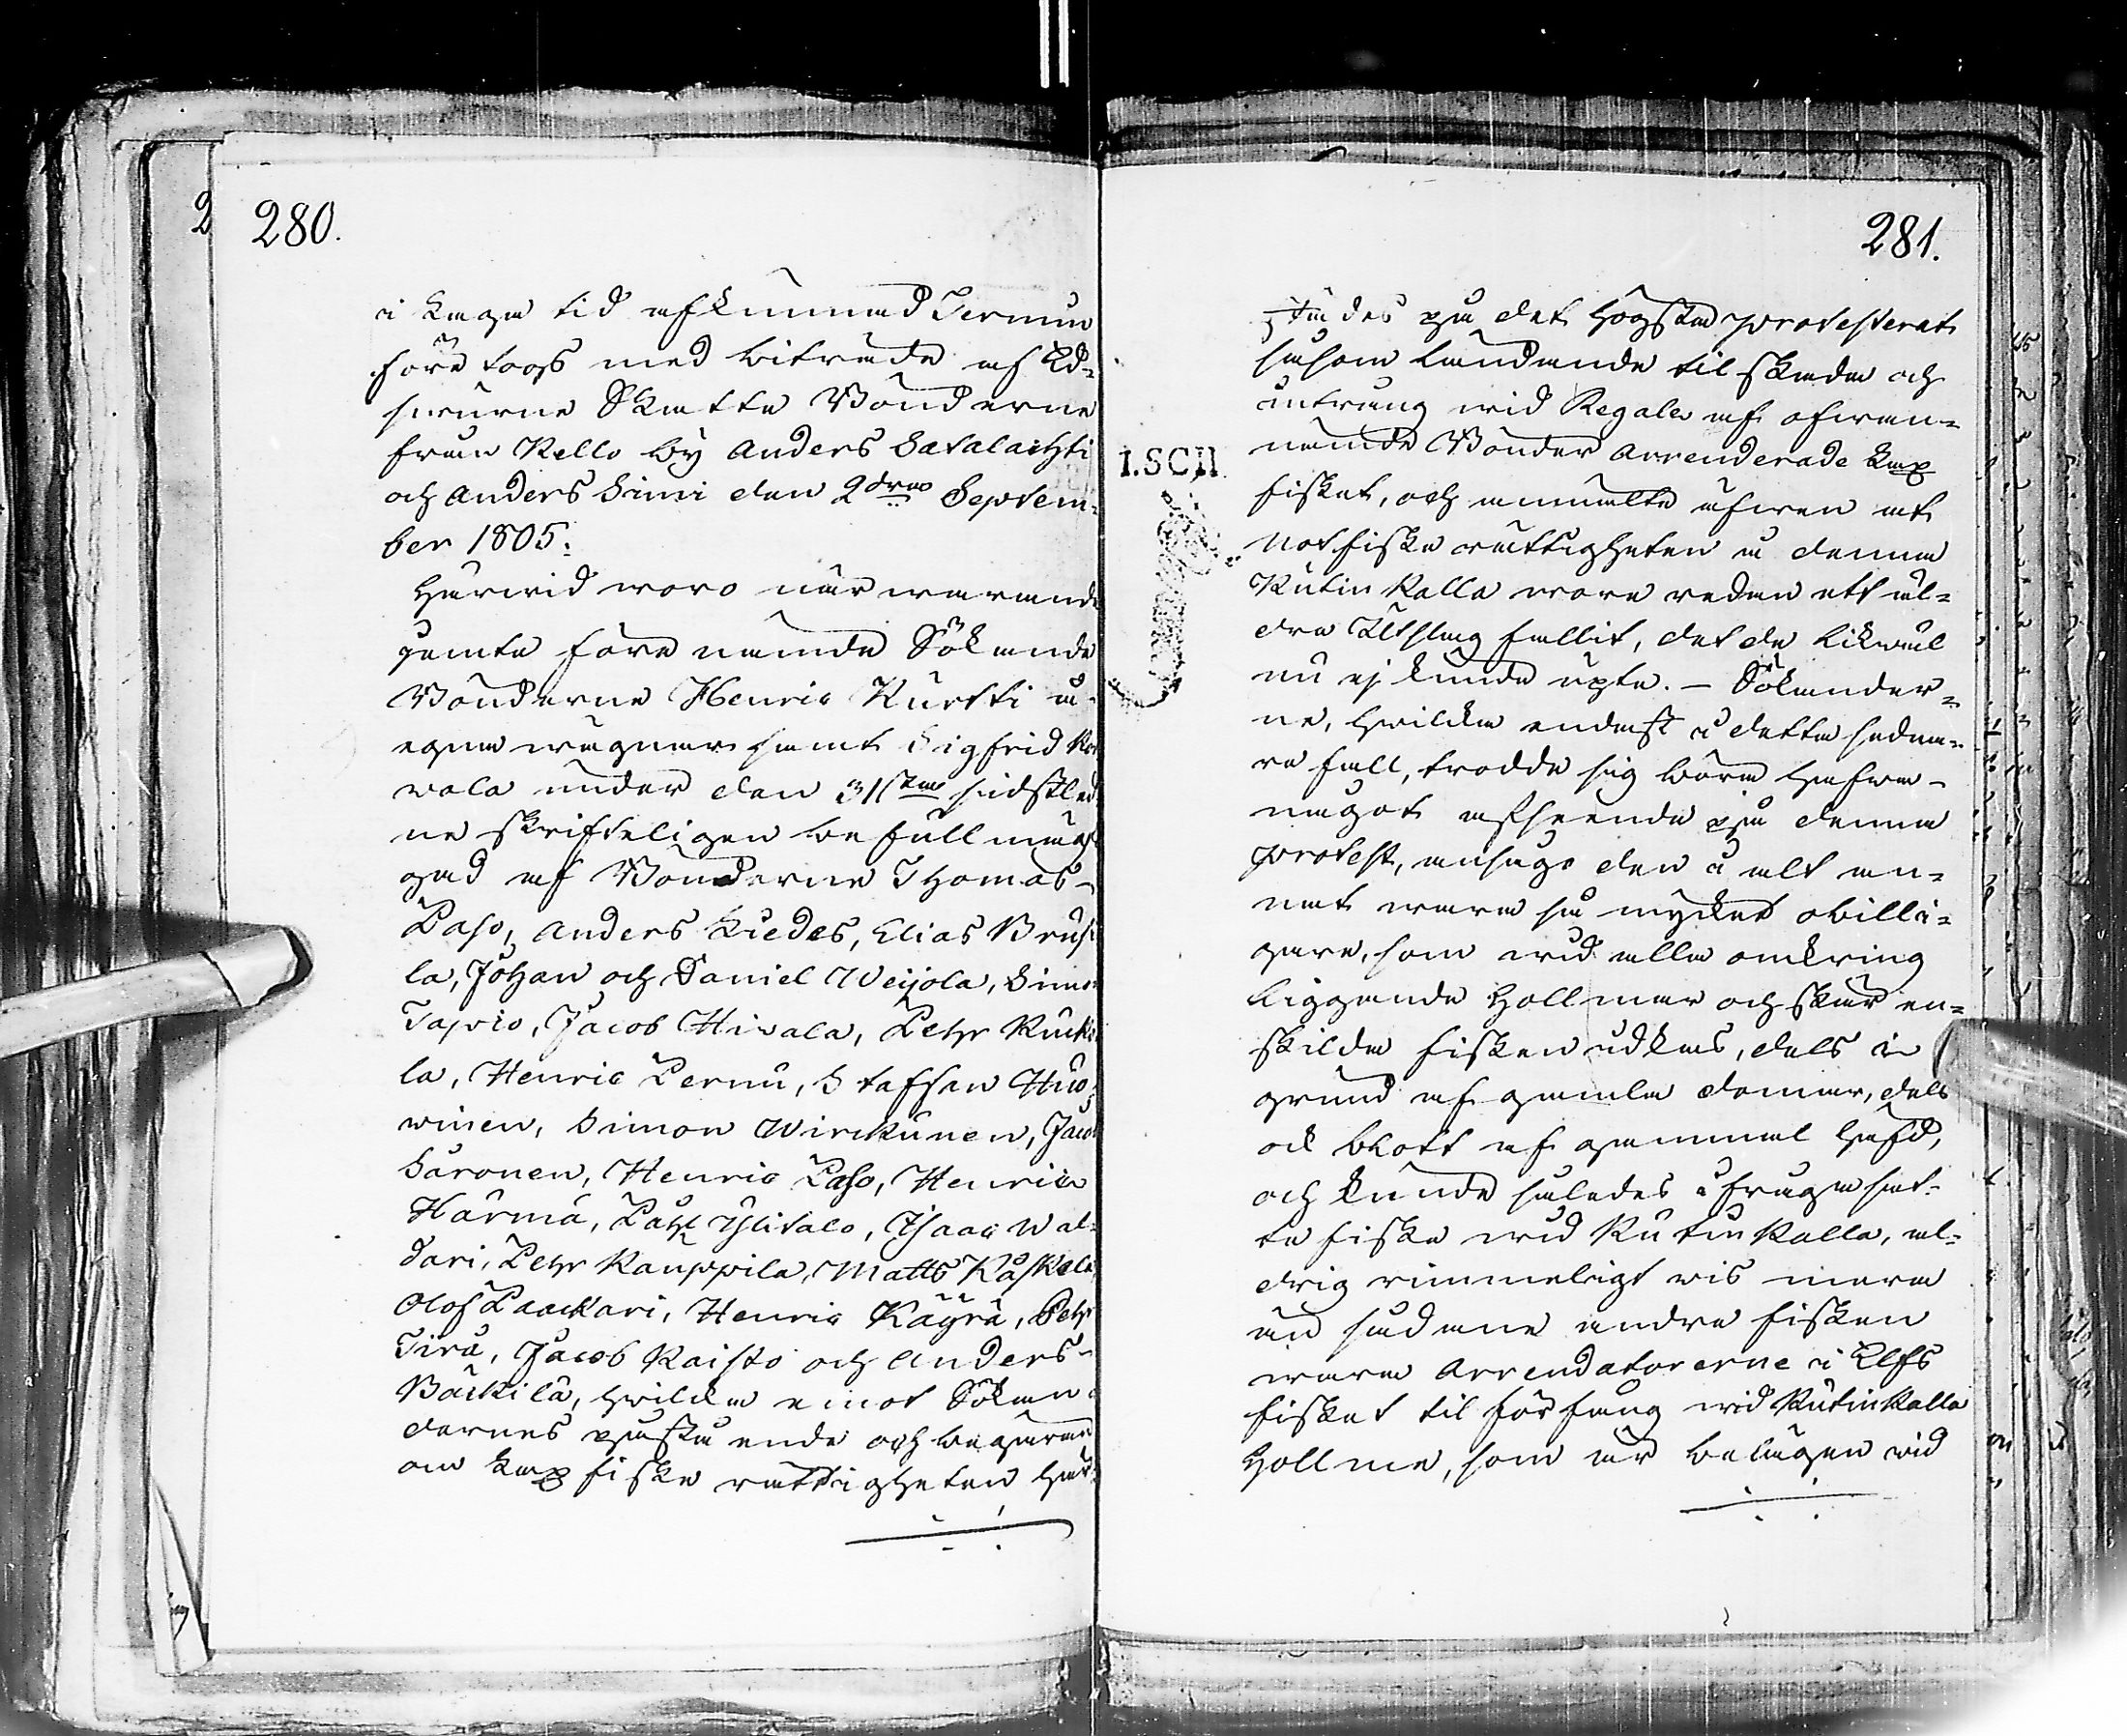 280.
i laga tid afkunnad Termin
före togs med biträde af Ed-
swurne Skatte Bönderne
från Kello by Anders Satalachti
och Anders Simi den 2dra Septem-
ber 1805.
Härwid woro närwarande
jemte före nämde Sökande
Bönderne Henric Kurtti å
egna wägnar samt Sigfrid
wala under den 31sta sidstled
ne skrifteligen befullmäg
gad af Bönderne Thomas
Paso, Anders Kiedes, Elias Brusi
la, Johan och Daniel Weijola, Simon
Tapio, Jacob Hiwala, Pehr Ruck
la, Henric Pernu, Staffan Huo
winen, Simon Wirckunen, Jacob
Saronen, Henric Paso, Henric
Härmä, Påhl Ylitalo, Isaac Wal-
dari, Pehr Kauppila, Matts Kåskela
Olof Paackari, Henric Käyrä, Pehr
Tira, Jacob Kaisto och Anders
Bäckilä, hwilka emot Sökan
dernes påstående och begäran
om Lax fiske rättigheten här
281.
städes på det högsta protesterat
såsom ländande til skada och
intrång wid Regale af ofwan-
nämde Bönder Arrenderade Lax
fisket, och anmälte äfwen at
Notfiske rättigheten å denna
Kutin Kalla wore redan ett äl-
dre Utslag fallit, det de likwäl
nu ej kunde upte. - Sökander-
ne, hwilka endast i detta sedna-
re fall, trodde sig böra hafwa
något afseende på denna
protest, ansågo den i alt an-
nat wara så mycket obilli-
gare, som wid alla omkring
liggande hollmar och skär en-
skilda fisken idkas, dels i
grund af gamla domar, dels
ock blott af gammal häfd,
och kunde således ifrågasat-
te fiske wid Kutin Kalla, al-
drig rimmeligt wis mera
än sådane andre fisken
wara Arrendatorerne i Elfs
fisket til förfång wid Kutin Kalla
Hollme, som är belägen wid